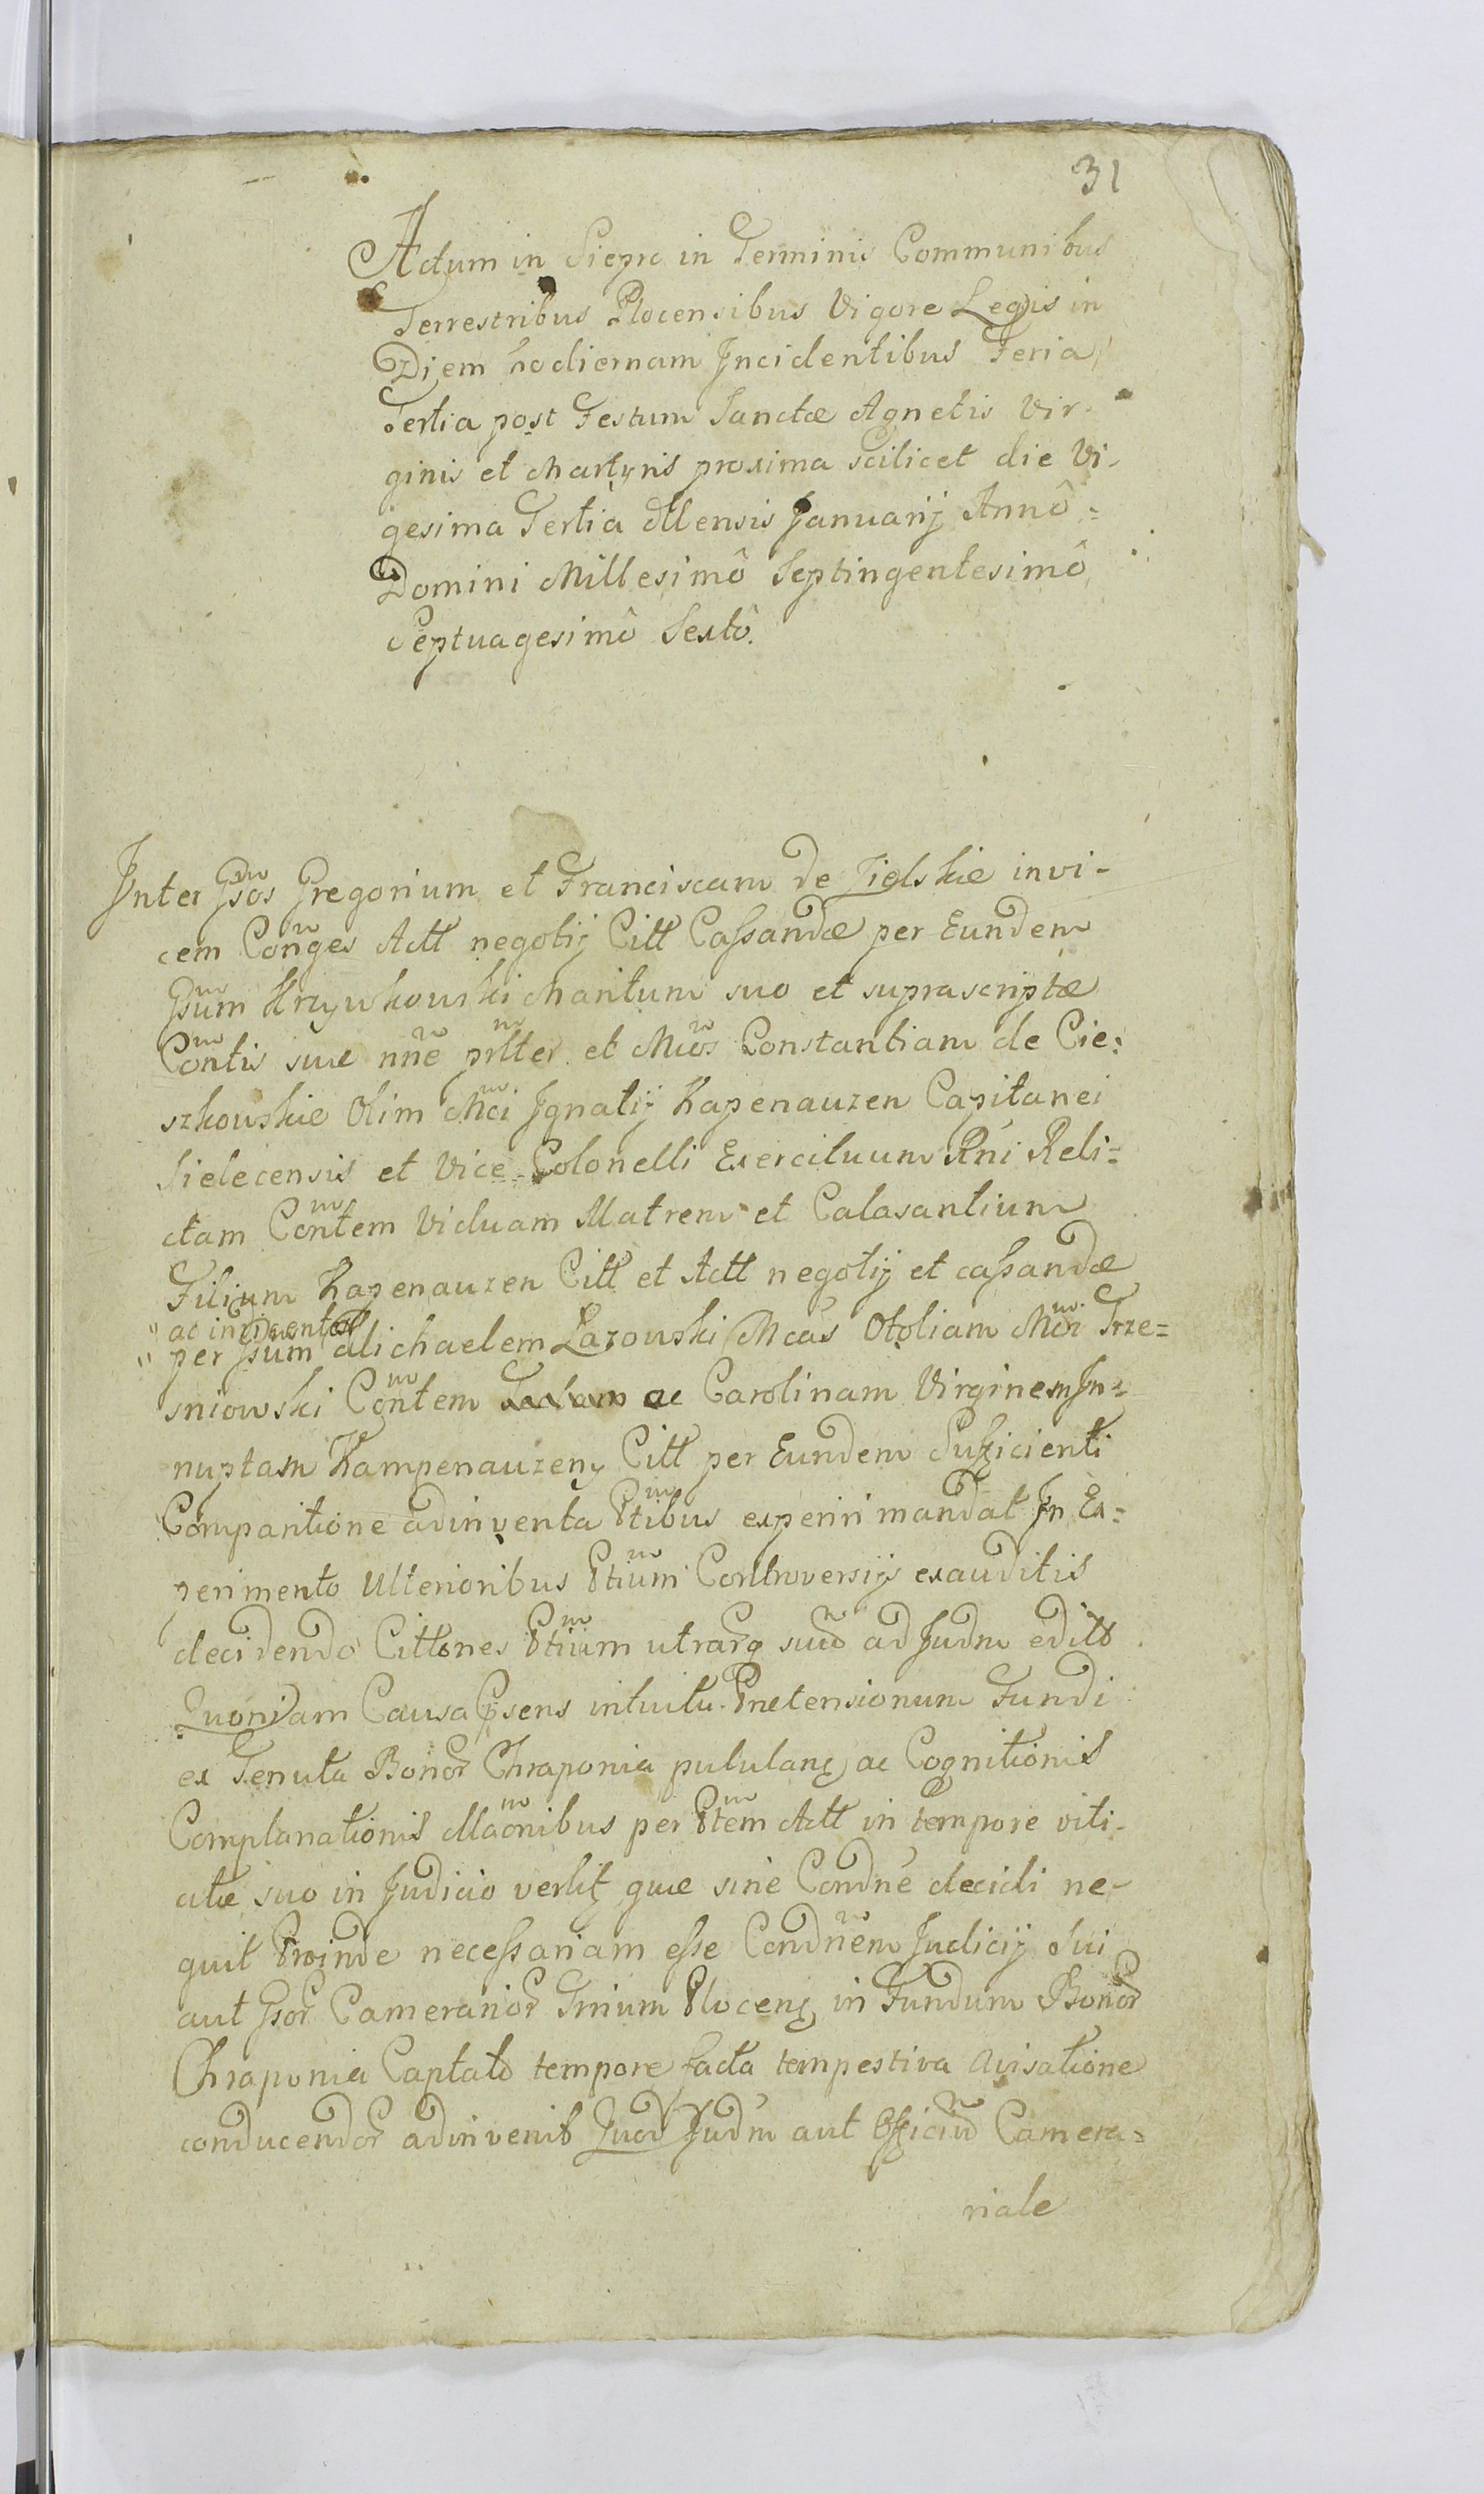 31
Actum in Siepc in Terminis Communibus
Terrestribus Plocensibus Vigore Legis in
Diem hodiernam Incidentibus Feria
Tertia post Festum Sanctæ Agnetis Vir-
ginis et Martyris proxima scilicet die Vi-
gesima Tertia Mensis Januarij Annô =
Domini Millesimô Septingentesimô
Septuagesimô Sextô.
Inter Gsos Gregorium et Franciscam de Zielskie invi-
cem Conges Actt negotij Citt Cassandæ per Eundem
Gsum Krzywkowski Maritum suo et suprascriptæ
Contis suæ nne prlter et Mcos Constantiam de Cie=
szkowskie Olim Mci Ignatij Kapenauzen Capitanei
Sielecensis et Vice-Colonelli Exercituum Rni Reli=
ctam Contem Viduam Matrem et Calasantium
Filium Kapenauzen Citt et Actt negotij et cassandæ
ac inivicentes
per Gsum Michaelem Lazowski Mcas Otoliam Mci Trze=
sniowski Contem ac Carolinam Virginem In=
nuptam Kampenauzeny Citt per Eundem Sufficienti
Comparitione adinventa Ptibus experiri mandat In Ex=
perimento Ulterioribus Ptium Controversijs exauditis
decidendo Cittones Ptium utrarq suud ad Judm editt
Quoniam Causa Psens intuitu Prætensionum Fundi
ex Tenuta Bonor Chraponia pululans ac Cognitionis
Complanationis Maonibus per Ptem Actt in tempore viti-
atæ suo in Judicio vertit quæ sine Condne decidi ne-
quit Proinde necessariam esse Condnem Judicij Sui
aut Gsor Camerarior Trium Plocens in Fundum Bonor
Chraponia Captato tempore facta tempestiva Avisatione
conducendor adinvenit Quod Judm aut Officiu Camera=
riale